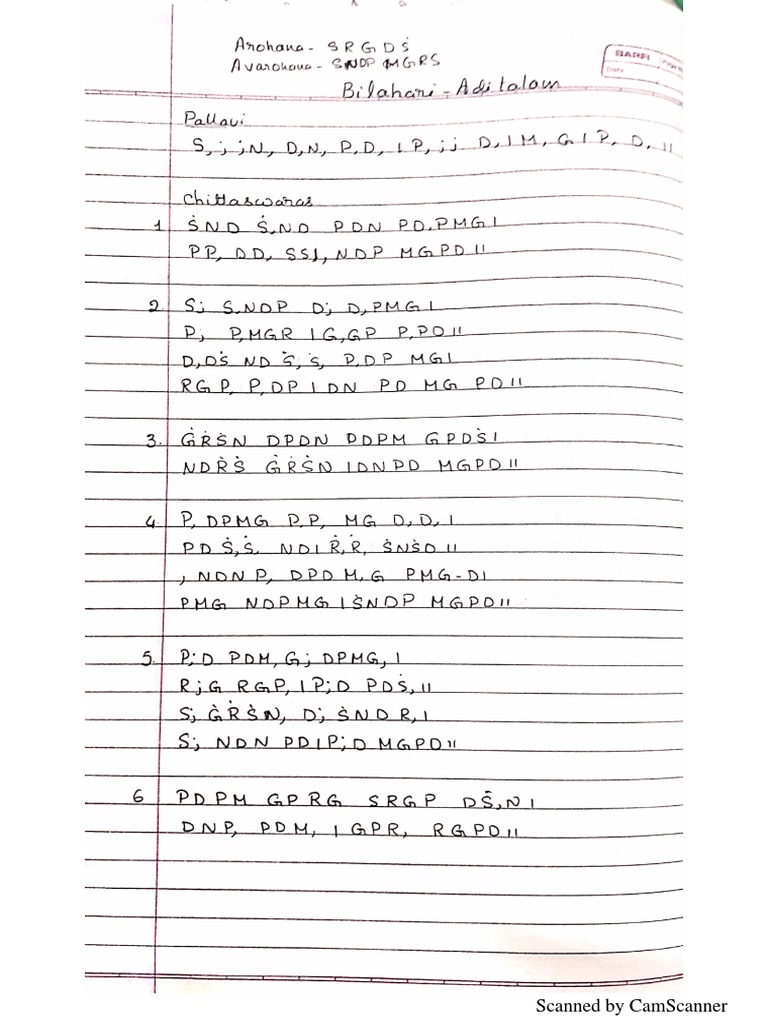 Arohana - S R G D Ṡ
Avarohana - SNDP MGRS
BARFI
Date
Bilahari - Aditalam
Pallavi
S, ; ; N, D, N, P, D, I P, ; ; D, I M, G I P, D, II
Chittaswaras
1 ṠND Ṡ,ND PDN PD,PMG I
PP, DD, SSI, NDP MGPD II
2. S; S,NDP D; D,PMG I
P; P,MGR I G,GP P,PD II
D,DṠ ND Ṡ,Ṡ, P,DP MG I
RGP, P,DP I DN PD MG PD II
3. ĠṘṠN DPDN PDPM GPDṠ I
NDṘṠ ĠṘṠN I DNPD MGPD II
4 P, DPMG P,P, MG D,D, I
PD Ṡ,Ṡ, ND I Ṙ,Ṙ, ṠNṠD II
, NDN P, DPD M,G PMG-D I
PMG NDPMG I ṠNDP MGPD II
5. P;D PDM, G; DPMG, I
R;G RGP, I P;D PDṠ, II
S; ĠṘṠN, D; ṠND R, I
S; NDN PD I P;D MGPD II
6 PDPM GPRG SRGP DṠ,N I
DNP, PDM, I GPR, RGPD II
Scanned by CamScanner